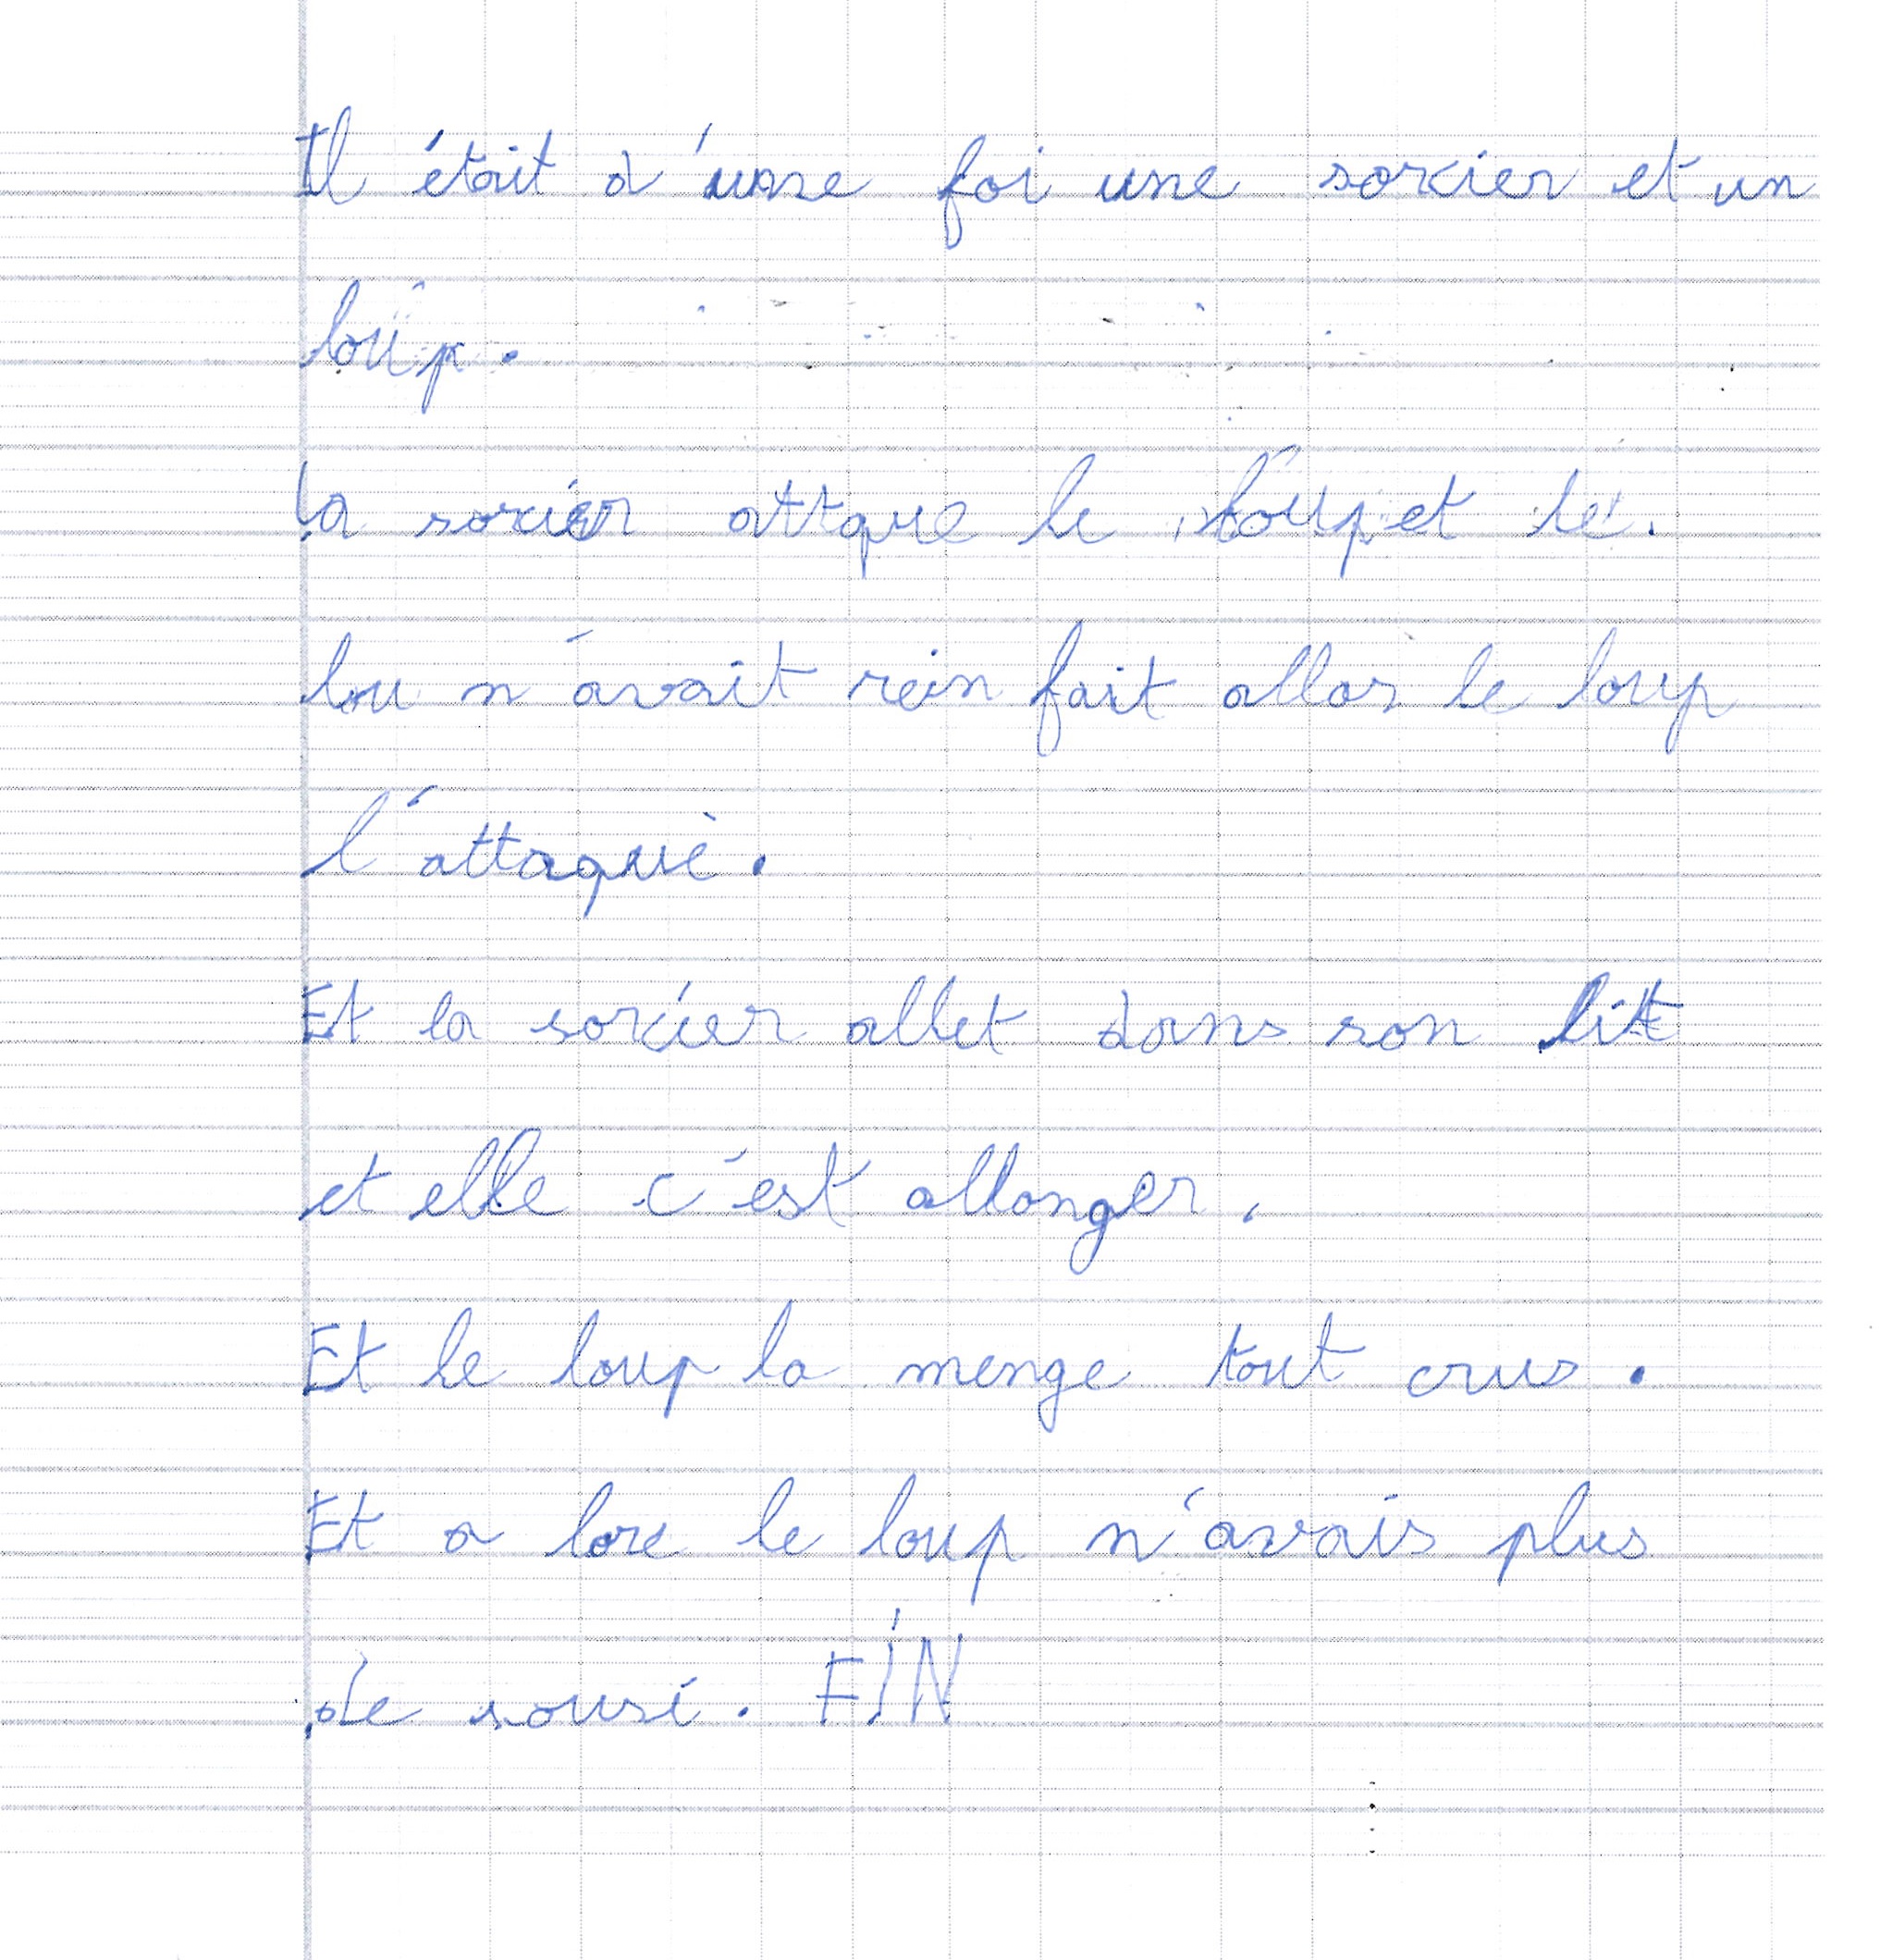 Il était d'une foi une sorcier et un
loup.
la sorcier attque le loup et le
lou n'avait rein fait allos le loup
l'attaquè.
Et la sorcier allet dans son lit
et elle c'est allonger.
Et le loup la menge tout crus.
Et a lore le loup n'avais plus
de sousi. FIN